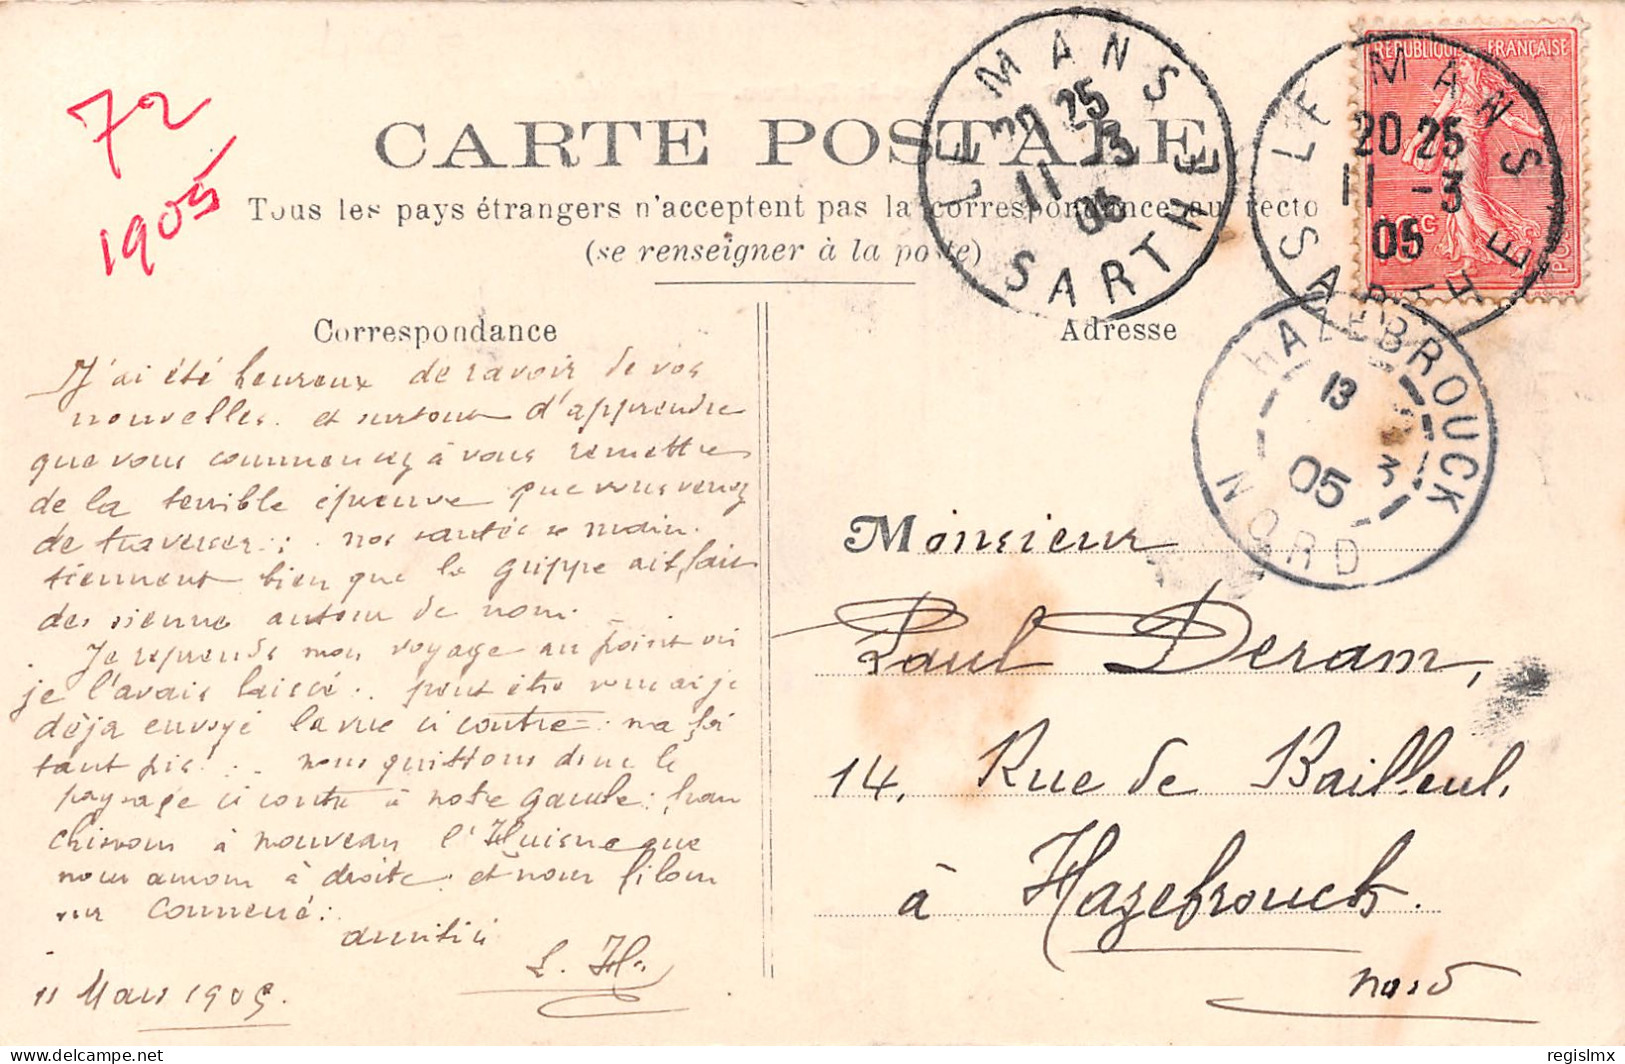 72
1905
CARTE POSTALE
Tous les pays étrangers n'acceptent pas la correspondance au recto
(se renseigner à la poste)
LE MANS
20 25
11 - 3
05
SARTHE
REPUBLIQUE FRANÇAISE
10c
POSTES
LE MANS
20 25
11 - 3
05
SARTHE
HAZEBROUCK
13
3
05
NORD
Correspondance
J'ai été heureux de ravoir de vos
nouvelles. et surtout d'apprendre
que vous commencez à vous remettre
de la terrible épreuve que vous venez
de traverser.: nos santés se main-
tiennent bien que la grippe ait fait
des siennes autour de nous.
Je reprends mon voyage au point où
je l'avais laissé.. peut être vous ai je
déjà envoyé la vue ci contre: ma foi
tant pis!.. nous quittons donc le
paysage ci contre à notre gauche: fran
chissons à nouveau l'Huisne que
nous avions à droite. et nous filons
sur Connerré:
amitiés
L. H.
11 Mars 1905.
Adresse
Monsieur
Paul Deram,
14, Rue de Bailleul.
à Hazebrouck.
Nord
delcampe.net
regislmx